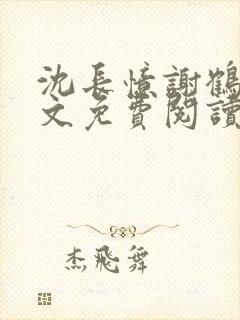 沈長憶謝鶴
文免費閱讀
杰飛舞